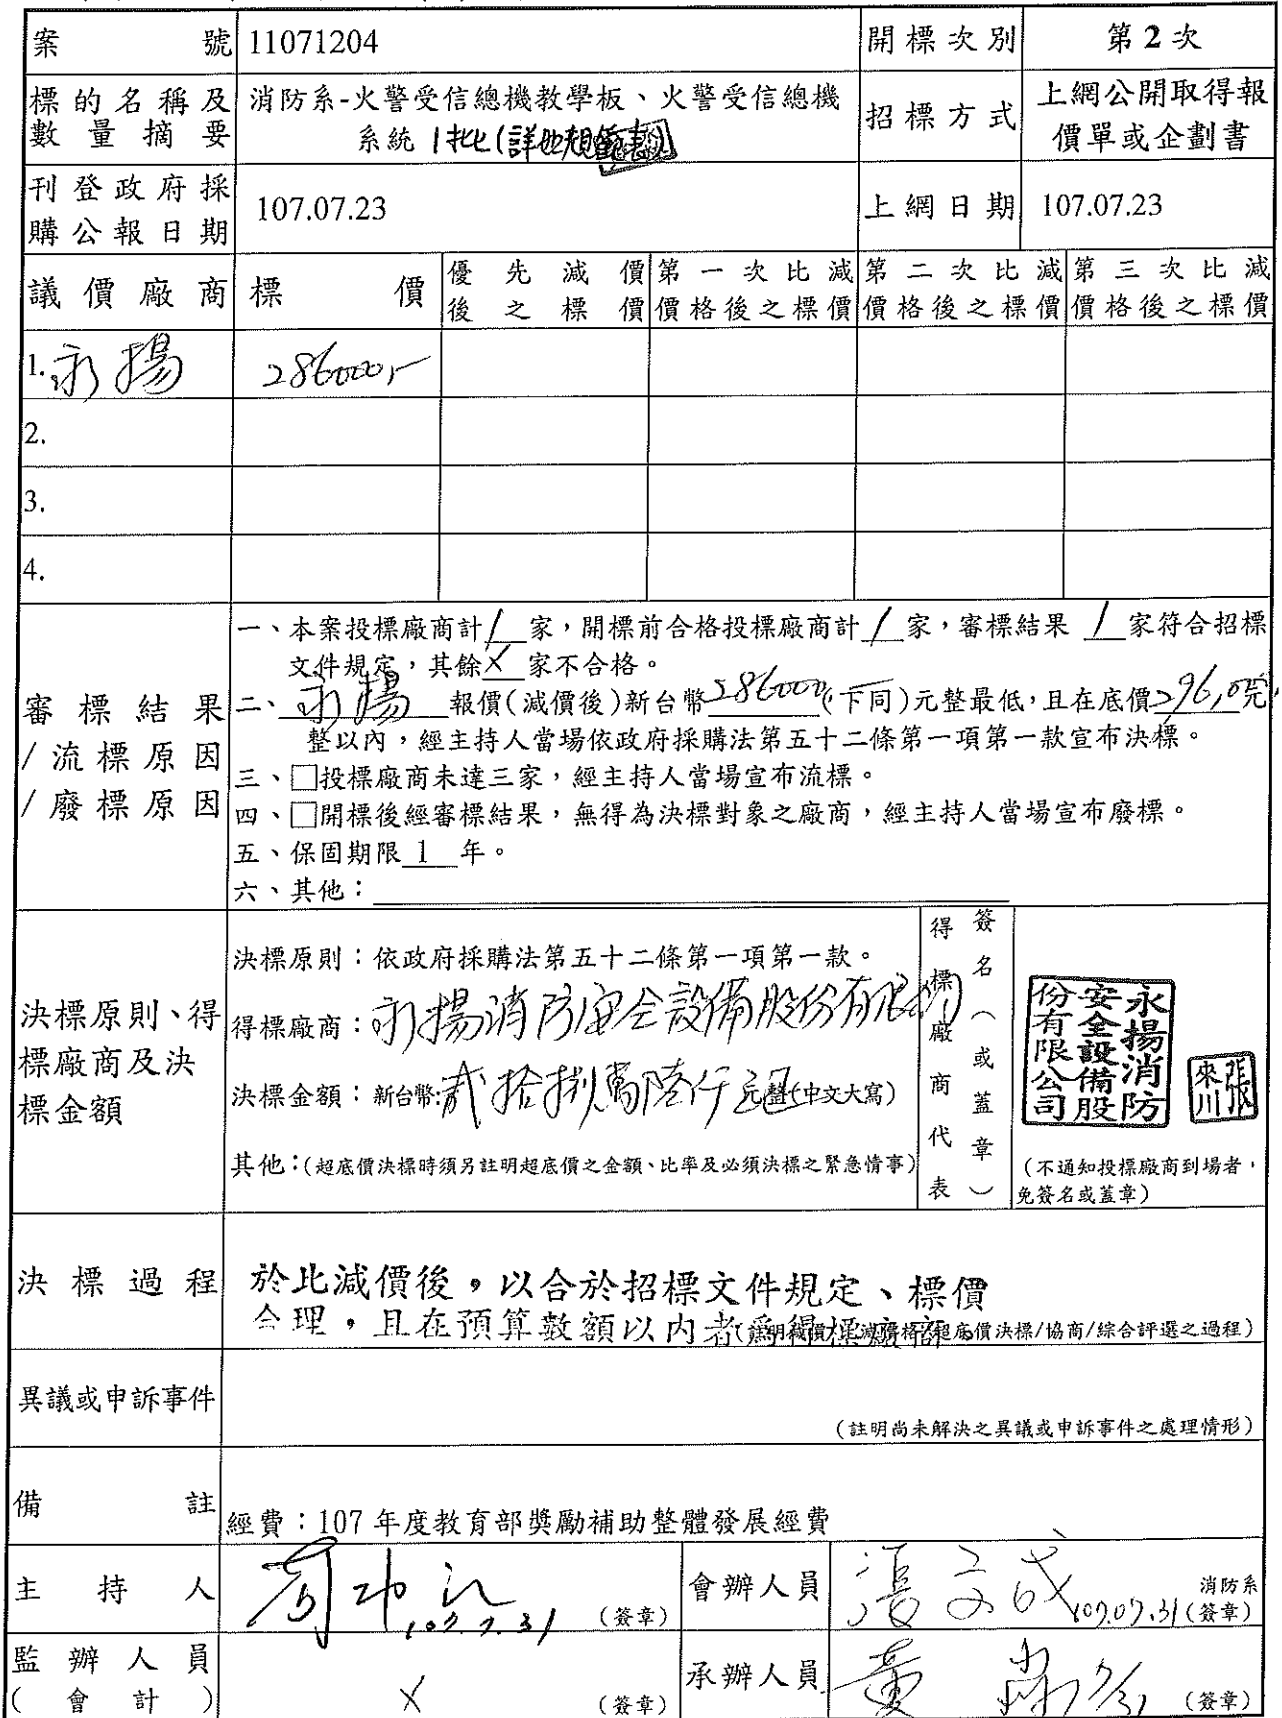 案號 11071204 開標次別 第2次
標的名稱及數量摘要 消防系-火警受信總機教學板、火警受信總機
系統 1批(詳如規範表) 招標方式 上網公開取得報
價單或企劃書
刊登政府採購公報日期 107.07.23 上網日期 107.07.23
議價廠商 標價 優先減價後之標價 第一次比減價格後之標價 第二次比減價格後之標價 第三次比減價格後之標價
1. 永揚 286000,-
2.
3.
4.
審標結果/流標原因/廢標原因
一、本案投標廠商計 1 家,開標前合格投標廠商計 1 家,審標結果 1 家符合招標
文件規定,其餘 X 家不合格。
二、永揚 報價(減價後)新台幣 286000 (下同)元整最低,且在底價 296,0 元
整以內,經主持人當場依政府採購法第五十二條第一項第一款宣布決標。
三、□投標廠商未達三家,經主持人當場宣布流標。
四、□開標後經審標結果,無得為決標對象之廠商,經主持人當場宣布廢標。
五、保固期限 1 年。
六、其他:
決標原則、得標廠商及決標金額
決標原則:依政府採購法第五十二條第一項第一款。
得標廠商:永揚消防安全設備股份有限公司
決標金額:新台幣:貳拾捌萬陸仟元整(中文大寫)
其他:(超底價決標時須另註明超底價之金額、比率及必須決標之緊急情事)
得標廠商代表
簽名(或蓋章)
永揚消防
安全設備股
份有限公司
張來川
(不通知投標廠商到場者,
免簽名或蓋章)
決標過程
於比減價後,以合於招標文件規定、標價
合理,且在預算數額以內者為得標廠商。
超底價決標/協商/綜合評選之過程)
異議或申訴事件
(註明尚未解決之異議或申訴事件之處理情形)
備註
經費:107 年度教育部獎勵補助整體發展經費
主持人 107.7.31 (簽章) 會辦人員 消防系
107.07.31 (簽章)
監辦人員
(會計) X (簽章) 承辦人員 (簽章)